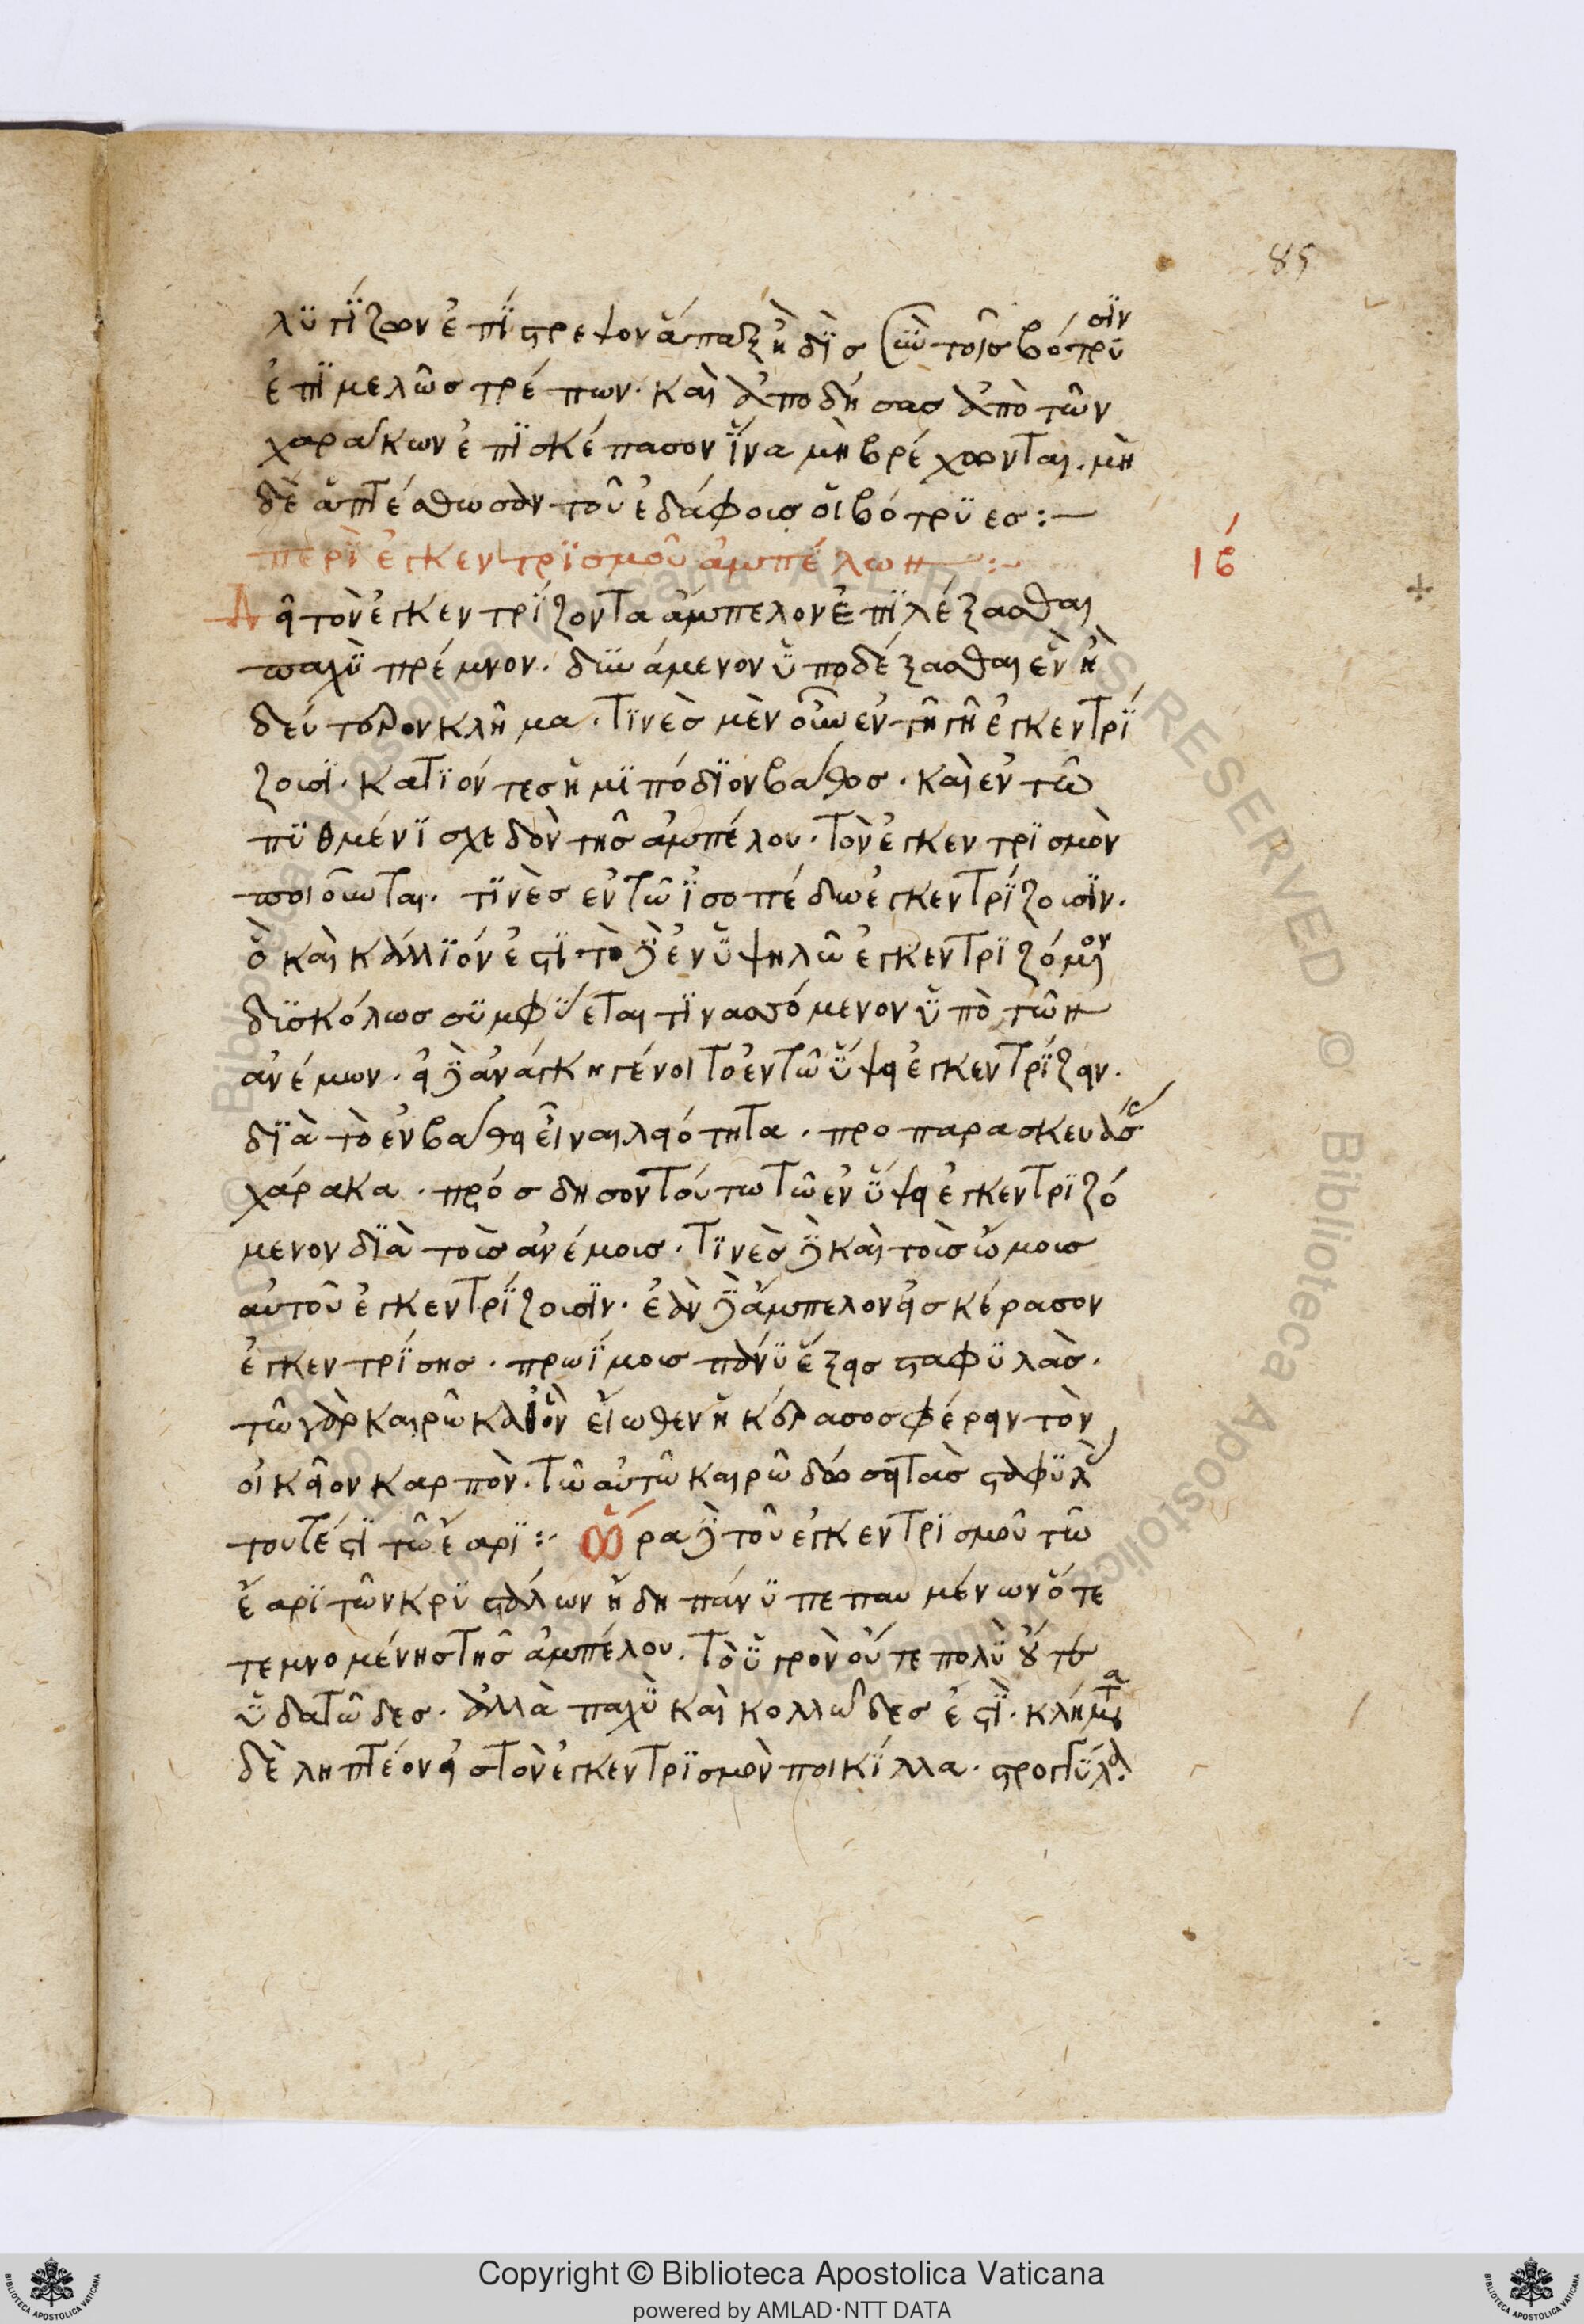 85
λϋγΐζων ἐπΐστρεψον ἅπαξ ἢ δῒς σὺν τοῖς βότρυσϊν
ἐπϊμελῶς τρέπων. καὶ ἀποδήσας ἀπὸ τῶν
χαράκων ἐπϊσκέπασον ἵνα μὴ βρέχωνται. μὴ
δὲ ἁπτέσθωσαν τοῦ ἐδάφους οἱ βότρϋες :—
περὶ ἐγκεντρϊσμοῦ ἀμπέλων :~
ιβ
Δεῖ τὸν ἐγκεντρΐζοντα ἄμπελον ἐπϊλέξασθαι
παχὺ πρέμνον. δϋνάμενον ὑποδέξασθαι ἓν ἢ
δεύτερον κλῆμα. τϊνὲς μὲν οὖν ἐν τῆ γῆ ἐγκεντρΐ
ζουσϊ. κατϊόντες ἡμϊπόδϊον βάθος. καὶ ἐν τῶ
πϋθμένϊ σχεδὸν τῆς ἀμπέλου. τὸν ἐγκεντρϊσμὸν
ποιοῦνται. τϊνὲς ἐν τῶ ἰσοπέδω ἐγκεντρΐζουσϊν.
ὃ καὶ κάλλϊόν ἐστϊ. τὸ δὲ ἐν ὑψηλῶ ἐγκεντρϊζόμενον
δϋσκόλως σϋμφΰεται τϊνασσόμενον ὑπὸ τῶν
ἀνέμων. εἰ δὲ ἀνάγκη γένοιτο ἐν τῶ ὕψει ἐγκεντρΐζειν.
δϊὰ τὸ ἐν βάθει εἶναι λειότητα. προπαρασκευάσας
χάρακα. πρόσδησον τούτω τῶ ἐν ὕψει ἐγκεντρϊζό
μενον δϊὰ τοὺς ἀνέμους. τϊνὲς δὲ καὶ τοὺς ὤμους
αὐτοῦ ἐγκεντρΐζουσϊν. ἐὰν δὲ ἄμπελον εἰς κέρασον
ἐγκεντρΐσης. πρωΐμους πάνϋ ἕξεις σταφϋλάς.
τῶ γὰρ καιρῶ καθ' ὃν εἴωθεν ἡ κέρασος φέρειν τὸν
οἰκεῖον καρπὸν. τῶ αὐτῶ καιρῶ δώσει τὰς σταφϋλὰς
τουτέστϊ τῶ ἔαρϊ :~ Ὥρα δὲ τοῦ ἐγκεντρϊσμοῦ τῶ
ἔαρϊ τῶν κρϋστάλων ἤδη πάνϋ πεπαυμένων ὅτε
τεμνομένης τῆς ἀμπέλου. τὸ ὑγρὸν οὔτε πολὺ οὔτε
ὑδατῶδες. ἀλλὰ παχὺ καὶ κολλῶδες ἐστϊ. κλήματα
δὲ ληπτέον εἰς τὸν ἐγκεντρϊσμὸν ποικΐλλα. στρογγΰλα.
Copyright © Biblioteca Apostolica Vaticana
powered by AMLAD·NTT DATA